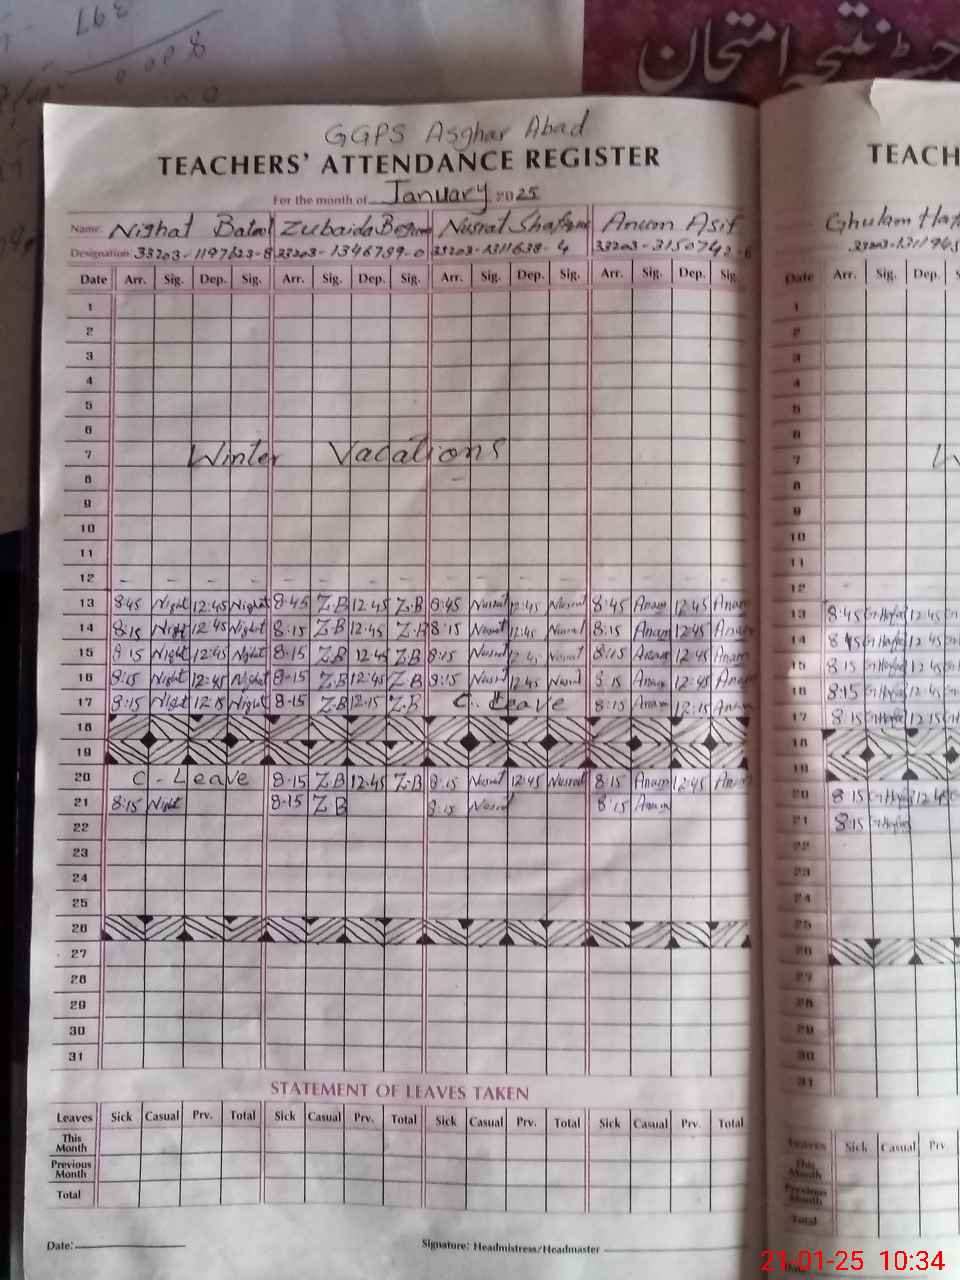 397
8000
جسٹر نتیجہ امتحان
GGPS Asghar Abad
TEACHERS' ATTENDANCE REGISTER
For the month of January 2025
Name: Nighat Batool Zubaida Begum Nusrat Anum Asif
Designation 33203-1197623-8 33203-1346799-0 33203-1311638-4 33203-3150742-6
Date Arr. Sig. Dep. Sig. Arr. Sig. Dep. Sig. Arr. Sig. Dep. Sig. Arr. Sig. Dep. Sig.
1
2
3
4
5
6
7 Winter Vacations
8
9
10
11
12
13 8:45 Night 12:45 Nighat 8:45 Z.B 12:45 Z.B 8:45 Nusrat 12:45 Nusrat 8:45 Anam 12:45 Anam
14 8:15 Night 12:45 Night 8:15 Z.B 12:45 Z.B 8:15 Nusrat 12:45 Nusrat 8:15 Anam 12:45 Anam
15 8:15 Night 12:45 Night 8:15 Z.B 12:45 Z.B 8:15 Nusrat 12:45 Nusrat 8:15 Anam 12:45 Anam
16 8:15 Night 12:45 Night 8:15 Z.B 12:45 Z.B 8:15 Nusrat 12:45 Nusrat 8:15 Anam 12:45 Anam
17 8:15 Night 12:15 Night 8:15 Z.B 12:15 Z.B C. Leave 8:15 Anam 12:15 Anam
18
19
20 C-Leave 8:15 Z.B 12:45 Z.B 8:15 Nusrat 12:45 Nusrat 8:15 Anam 12:45 Anam
21 8:15 Night 8:15 Z.B 8:15 Nusrat 8:15 Anam
22
23
24
25
26
27
28
29
30
31
STATEMENT OF LEAVES TAKEN
Leaves Sick Casual Prv. Total Sick Casual Prv. Total Sick Casual Prv. Total Sick Casual Prv. Total
This Month
Previous Month
Total
Date: Signature: Headmistress/Headmaster
TEACH
Ghulam
33203-1311945
Date Arr. Sig. Dep.
1
2
3
4
5
6
7 W
8
9
10
11
12
13 8:45 12:45
14 8:45 12:45
15 8:15 12:45
16 8:15 12:45
17 8:15 12:15
18
19
20 8:15 12:45
21 8:15
22
23
24
25
26
27
28
29
30
31
Leaves Sick Casual Prv
This Month
Previous Month
Total
21-01-25 10:34